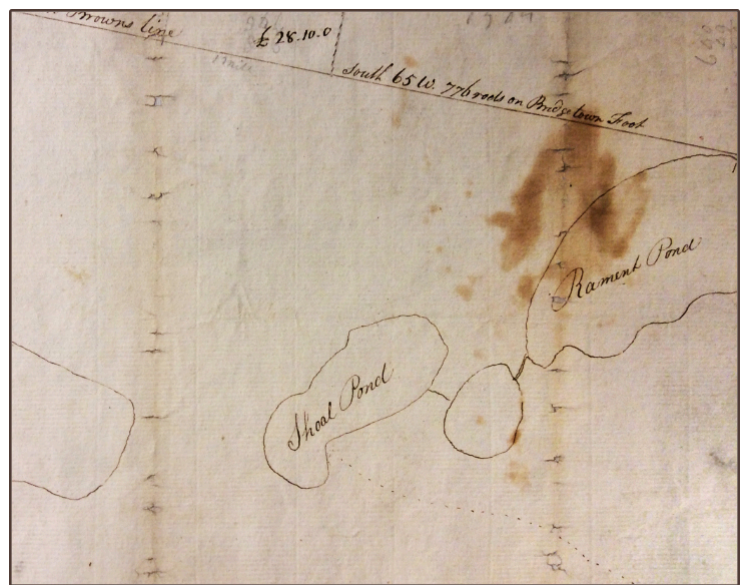 Browns line
£ 28.10.0
South 65 W. 776 rods on Bridgetown Foot
Rament Pond
Shoal Pond